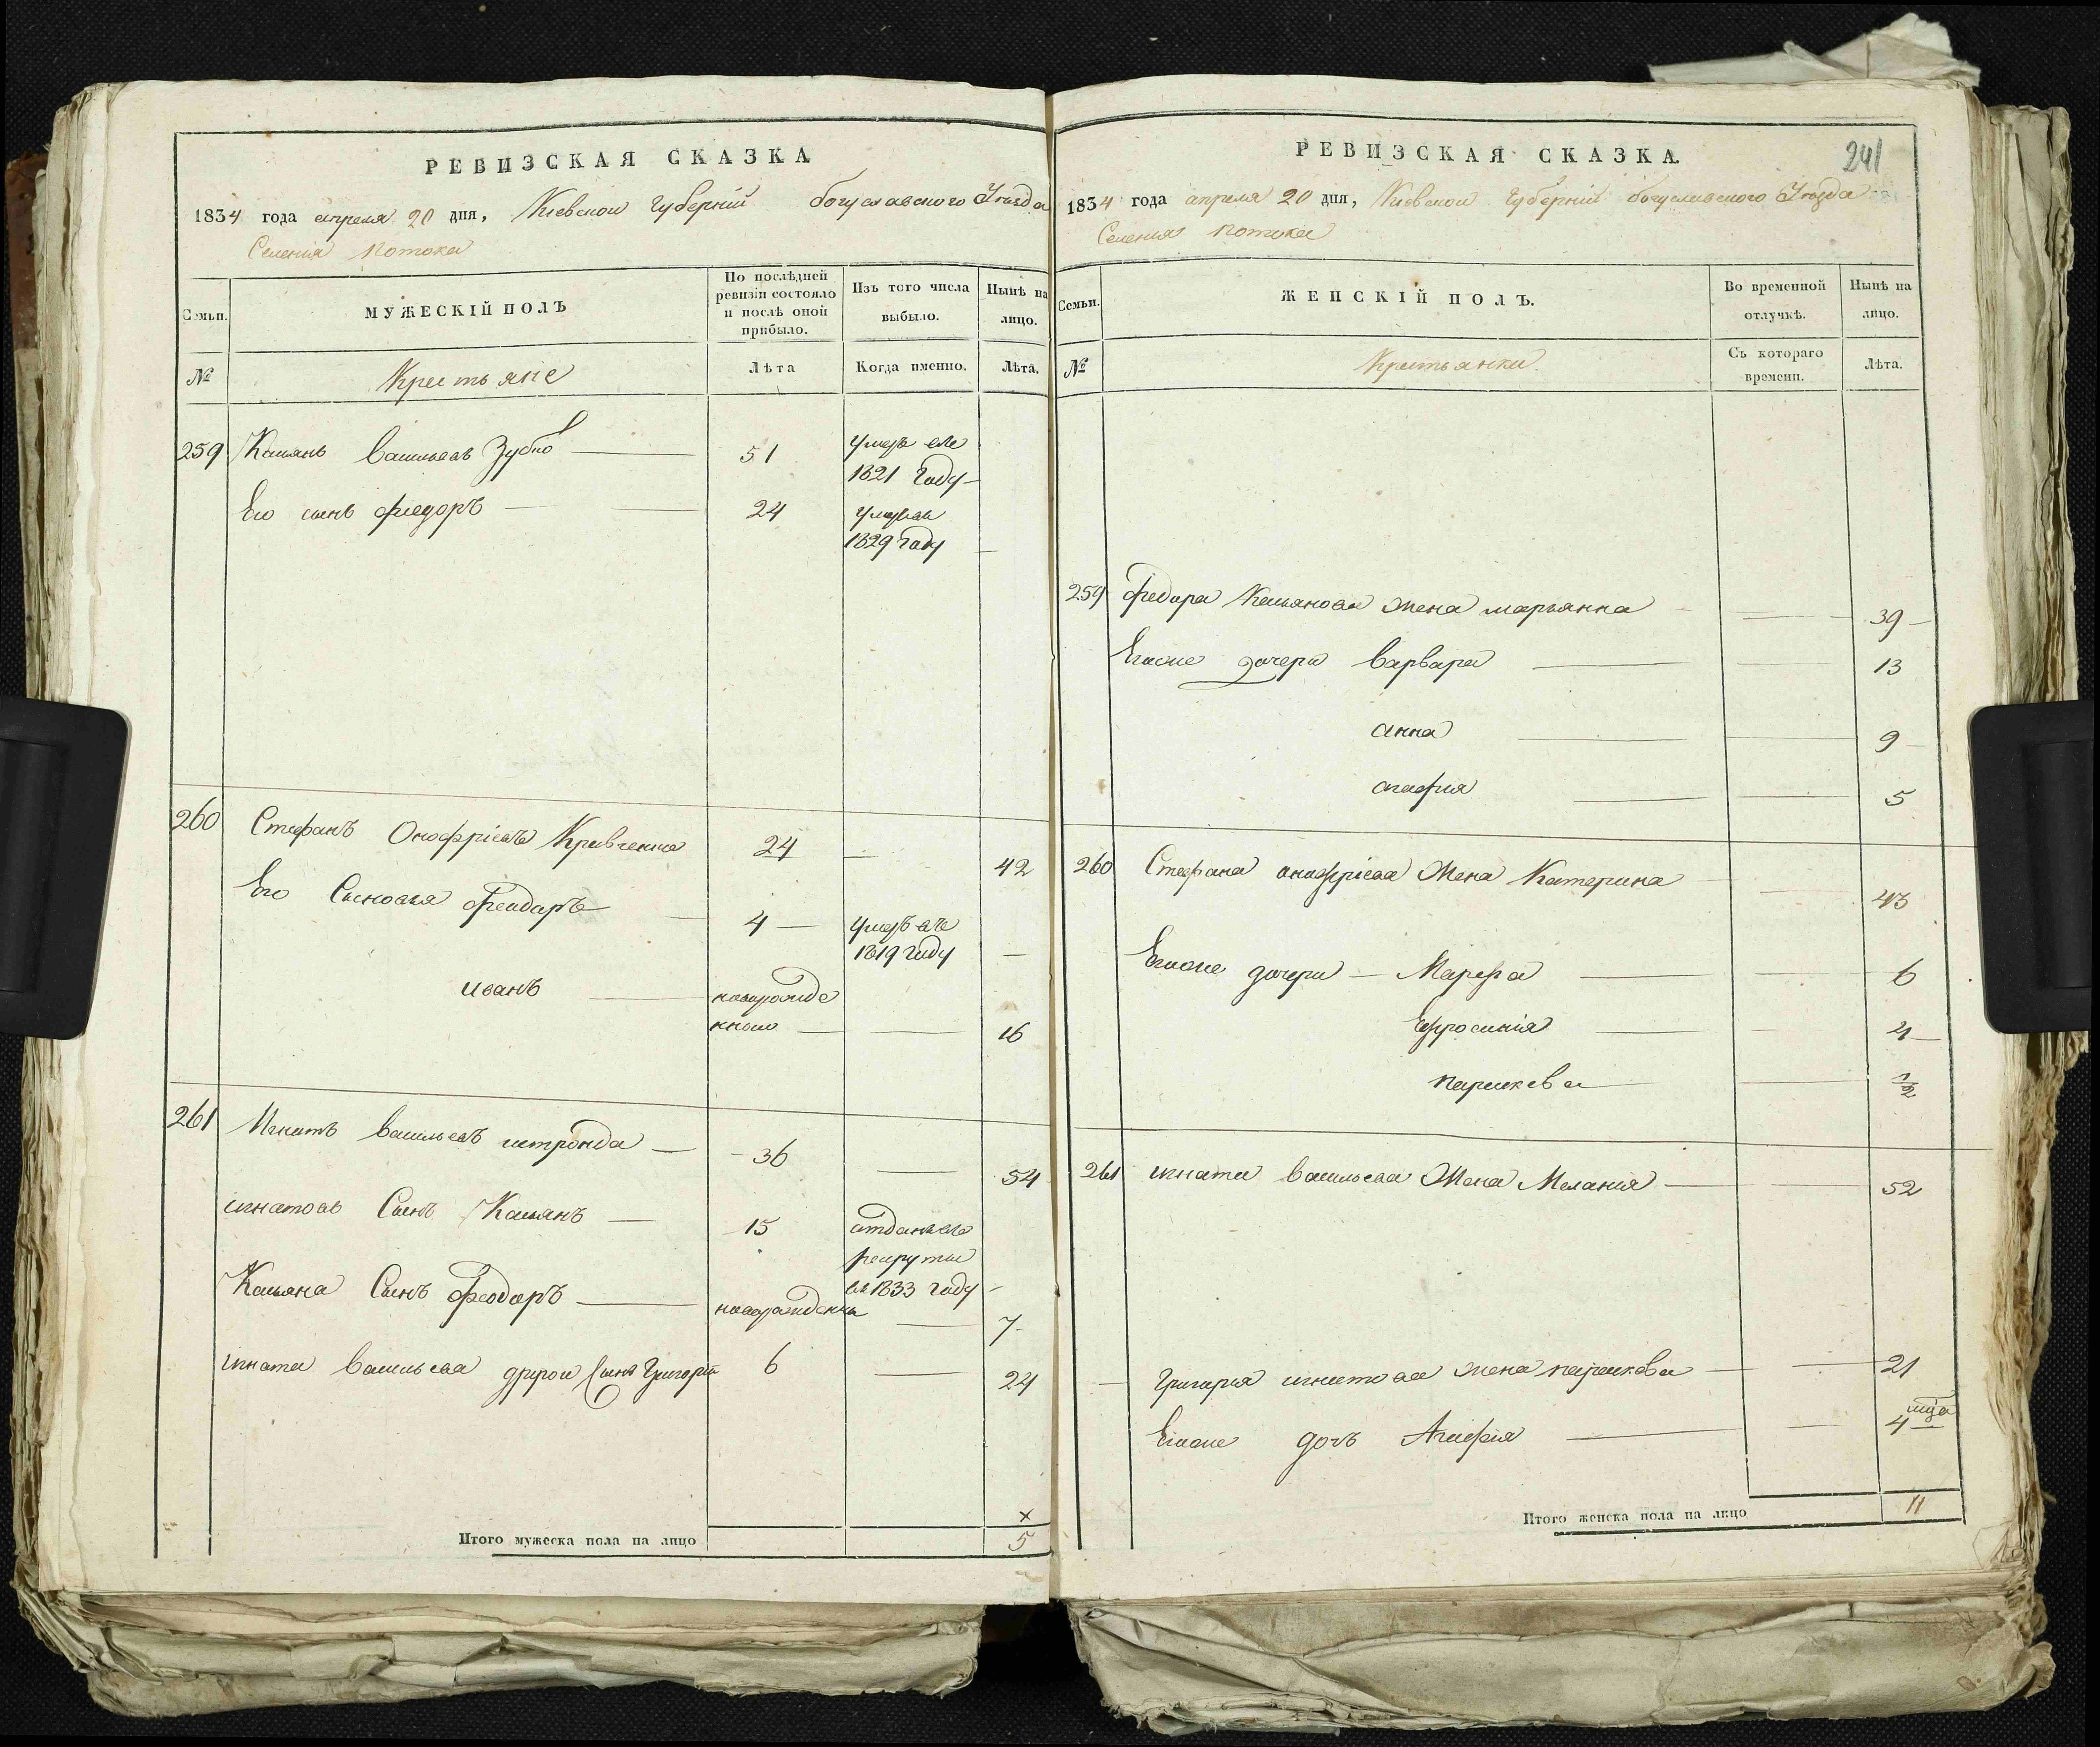 РЕВИЗСКАЯ СКАЗКА
1834 года апреля 20 дня, Киевской Губернїи богуславского Уезда
Селенїя Потока
Семьи.
МУЖЕСКІЙ ПОЛЪ
По послѣдней ревизіи состояло и послѣ оной прибыло.
Изъ того числа выбыло.
Нынѣ на лицо.
№
Крестьяне
Лѣта
Когда именно.
Лѣта.
259 Касянъ васильевъ Зубко 51 умеръ въ
1821 Году
Его сынъ федоръ 24 умеръ
1829 Году
260 Стефанъ Онофріевъ Кравченко 24 42
Его Сыновья феодоръ 4 умеръ въ
1819 году
иванъ новорожде
нного 16
261 Игнатъ васильевъ 36 54
игнатовъ Сынъ Касьянъ 15 отданъ въ
рекруты
въ 1833 году
Касьяна Сынъ феодоръ новорожденны 7
игната васильева другой Сынъ Григорій 6 24
Итого мужеска пола на лицо 5
РЕВИЗСКАЯ СКАЗКА.
241
1834 года апреля 20 дня, Киевской Губернїи богуславского Уезда
Селенїя Потока
Семьи.
ЖЕНСКІЙ ПОЛЪ.
Во временной отлучкѣ.
Нынѣ на лицо.
№
Крестьянки.
Съ котораго времени.
Лѣта.
259 федора Касьянова жена марьянна 39
Егоже дочери варвара 13
анна 9
агафия 5
260 Стефана онофріева Жена Катерина 43
Егоже дочери Марфа 6
Ефросинія 4
параскева 1/2
261 игната васильева Жена Мелания 52
Григория игнатова жена параскева 21
Егоже дочъ Агафия 4 мца
Итого женска пола на лицо 11